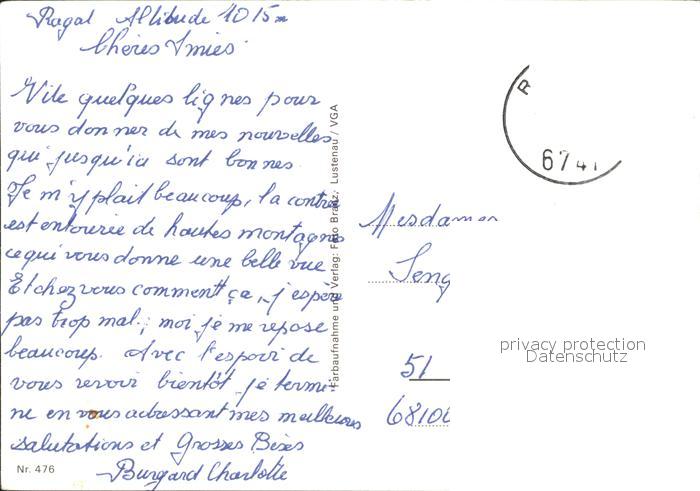 Ragal Altitude 1015m
Chères Amies
Vite quelques lignes pour
vous donner de mes nouvelles
qui jusqu'ici sont bonnes
Je m'y plait beaucoup, la contrée
est entourée de hautes montagnes
ce qui vous donne une belle vue
Et chez vous comment ça, j'espère
pas trop mal; moi je me repose
beaucoup. Avec l'espoir de
vous revoir bientôt je termi-
ne en vous adressant mes meilleures
salutations et Grosses Bises
Burgard Charlotte
Nr. 476
Farbaufnahme und Verlag: Foto Branz, Lustenau / VGA
R
6741
Mesdames
Seng
privacy protection
Datenschutz
51
6810